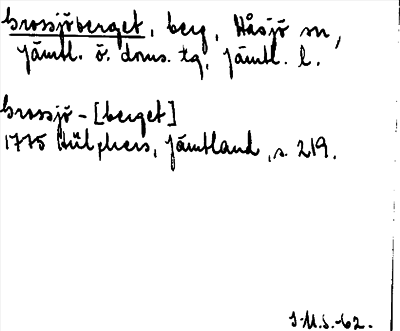 Grossjöberget, berg, Håsjö sn,
Jämtl. ö. doms. tg, Jämtl. l.
Grossjö-[berget]
1775 Hülphers, Jämtland, s. 219.
I.M.S.-62.